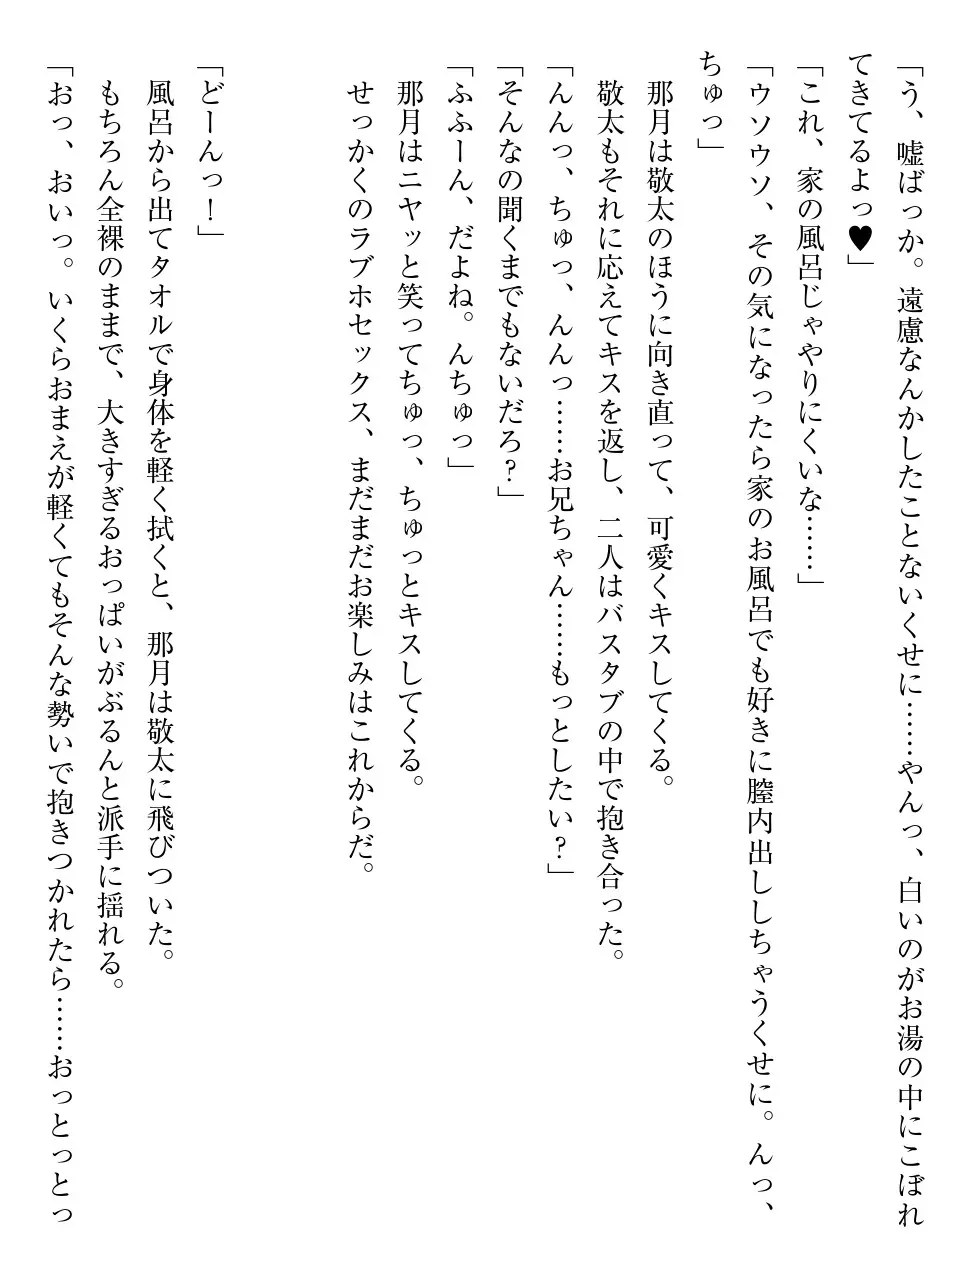 「う、嘘ばっか。遠慮なんかしたことないくせに……やんっ、白いのがお湯の中にこぼれ
てきてるよっ♥」
「これ、家の風呂じゃやりにくいな……」
「ウソウソ、その気になったら家のお風呂でも好きに膣内出ししちゃうくせに。んっ、
ちゅっ」
　那月は敬太のほうに向き直って、可愛くキスしてくる。
　敬太もそれに応えてキスを返し、二人はバスタブの中で抱き合った。
「んんっ、ちゅっ、んんっ……お兄ちゃん……もっとしたい？」
「そんなの聞くまでもないだろ？」
「ふふーん、だよね。んちゅっ」
　那月はニヤッと笑ってちゅっ、ちゅっとキスしてくる。
　せっかくのラブホセックス、まだまだお楽しみはこれからだ。
「どーんっ！」
　風呂から出てタオルで身体を軽く拭くと、那月は敬太に飛びついた。
　もちろん全裸のままで、大きすぎるおっぱいがぶるんと派手に揺れる。
「おっ、おいっ。いくらおまえが軽くてもそんな勢いで抱きつかれたら……おっとっとっ